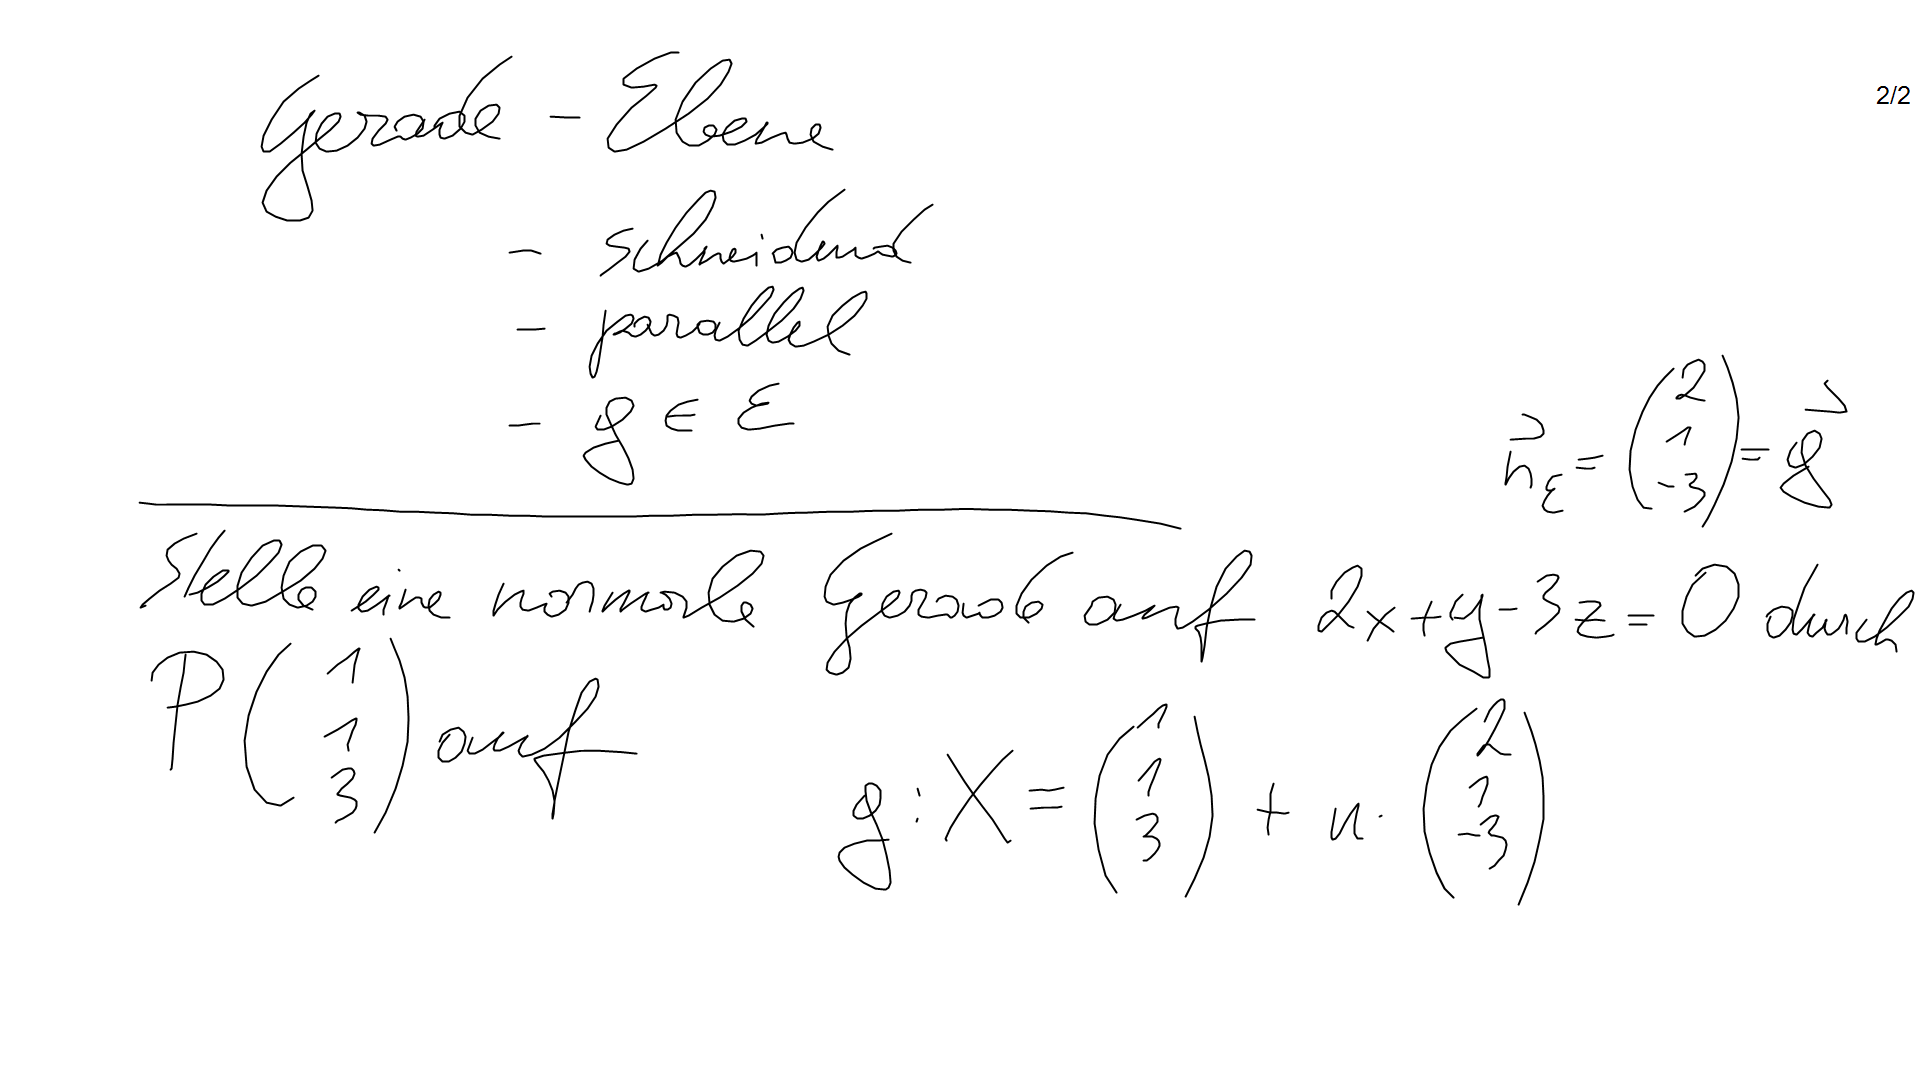 2/2
Gerade - Ebene
- schneidend
- parallel
- g ∈ ε
n⃗_ε = (2 1 -3) = g⃗
Stelle eine normale Gerade auf 2x+y-3z=0 durch
P(1 1 3) auf
g: X = (1 1 3) + u · (2 1 -3)